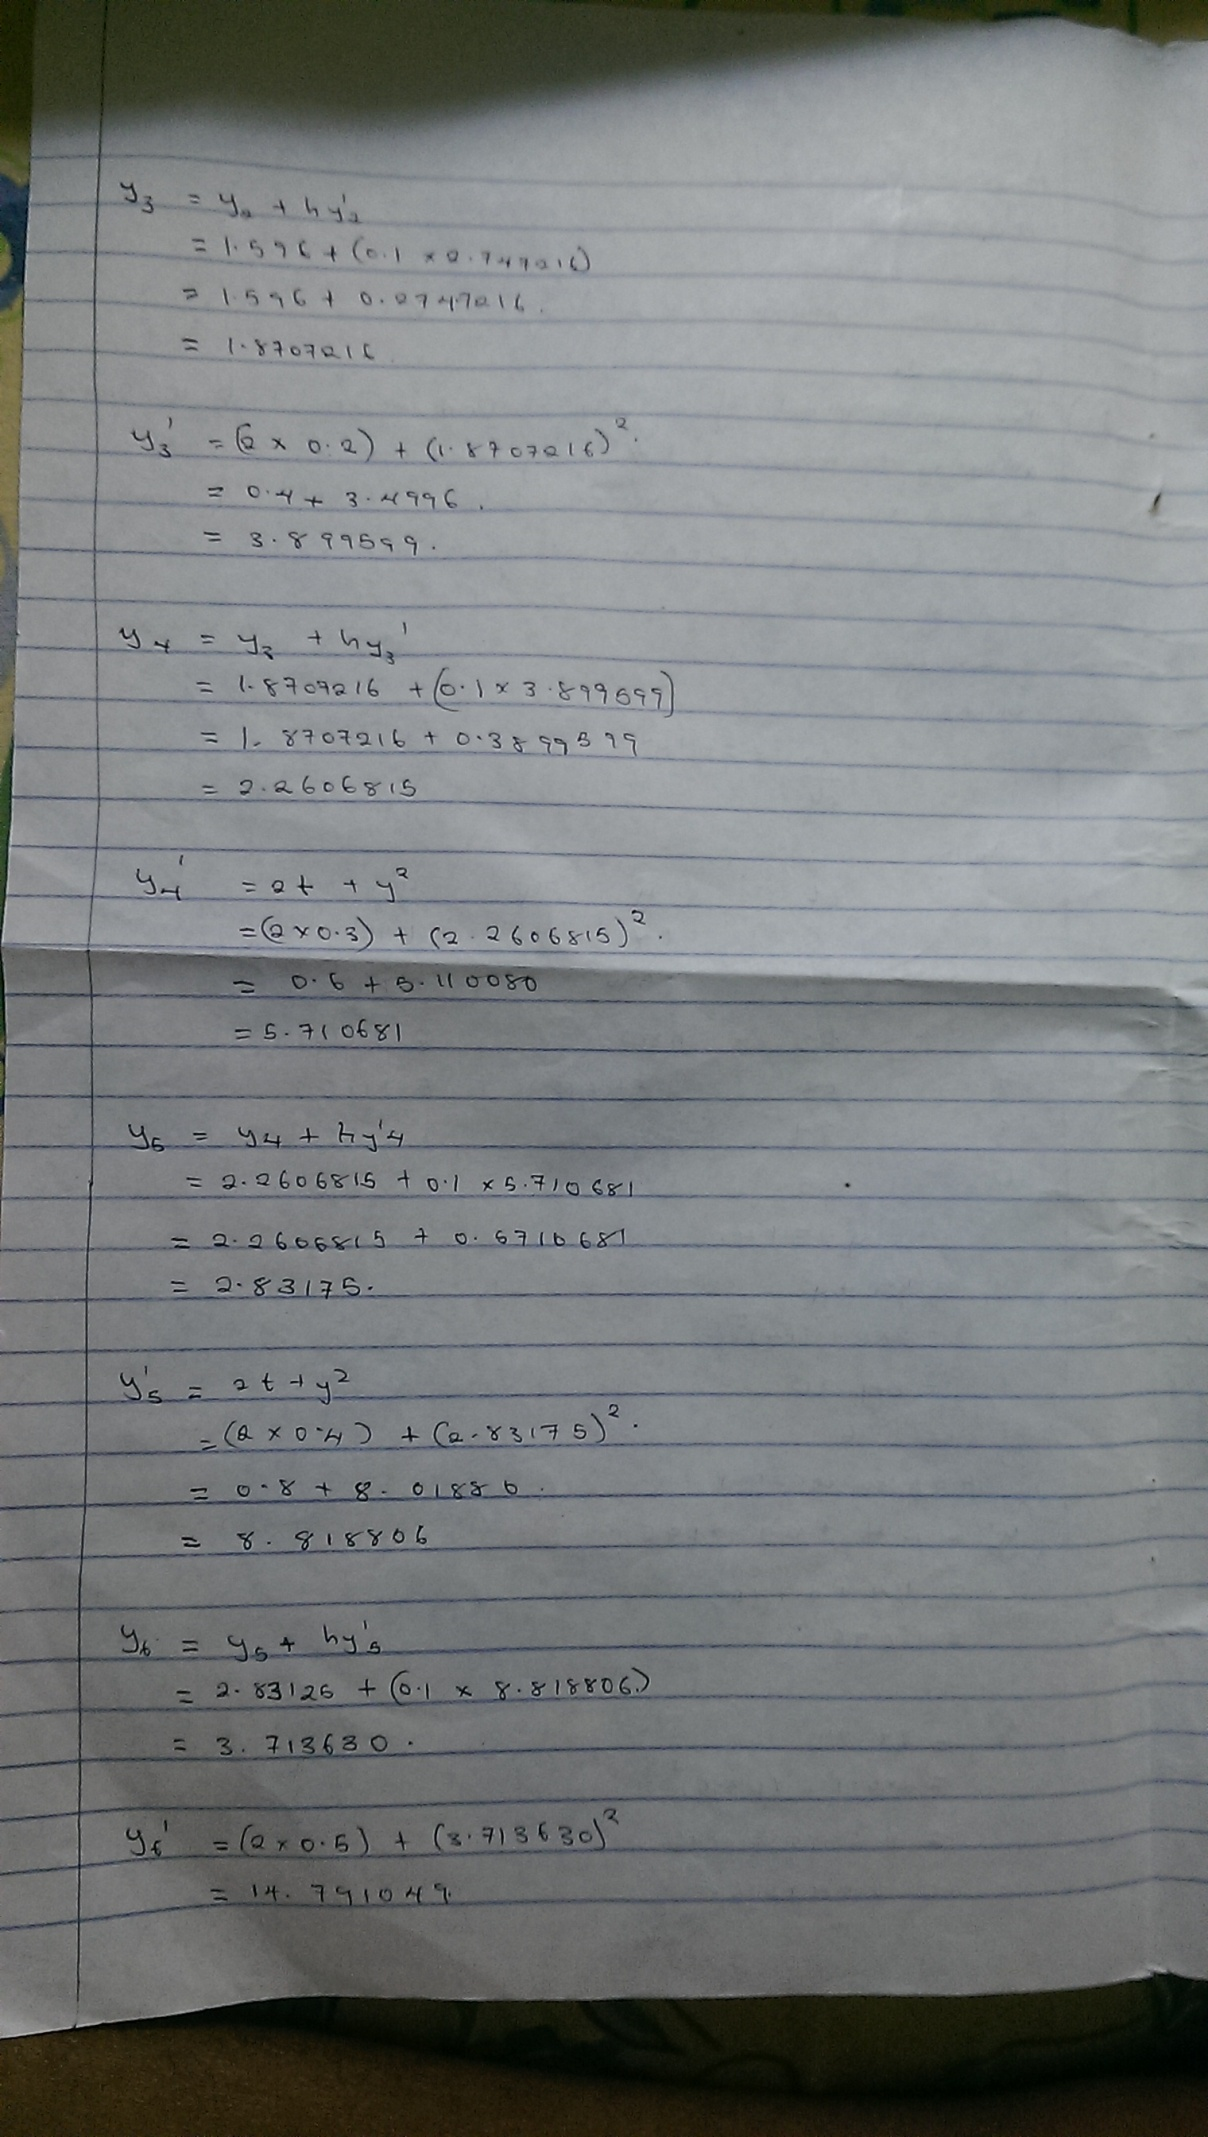 y₃ = y₂ + hy'₂
= 1.596 + (0.1 × 0.747216)
= 1.596 + 0.0747216.
= 1.8707216
y₃' = (2 × 0.2) + (1.8707216)².
= 0.4 + 3.4996.
= 3.899599.
y₄ = y₃ + hy₃'
= 1.8707216 + (0.1 × 3.899599)
= 1.8707216 + 0.3899599
= 2.2606815
y₄' = 2t + y²
= (2×0.3) + (2.2606815)².
= 0.6 + 5.110080
= 5.710681
y₅ = y₄ + hy'₄
= 2.2606815 + 0.1 × 5.710681
= 2.2606815 + 0.5710681
= 2.83175.
y'₅ = 2t + y²
= (2 × 0.4) + (2.83175)².
= 0.8 + 8.01880.
= 8.818806
y₆ = y₅ + hy'₅
= 2.83125 + (0.1 × 8.818806.)
= 3.713630.
y₆' = (2 × 0.5) + (3.713630)²
= 14.791049.